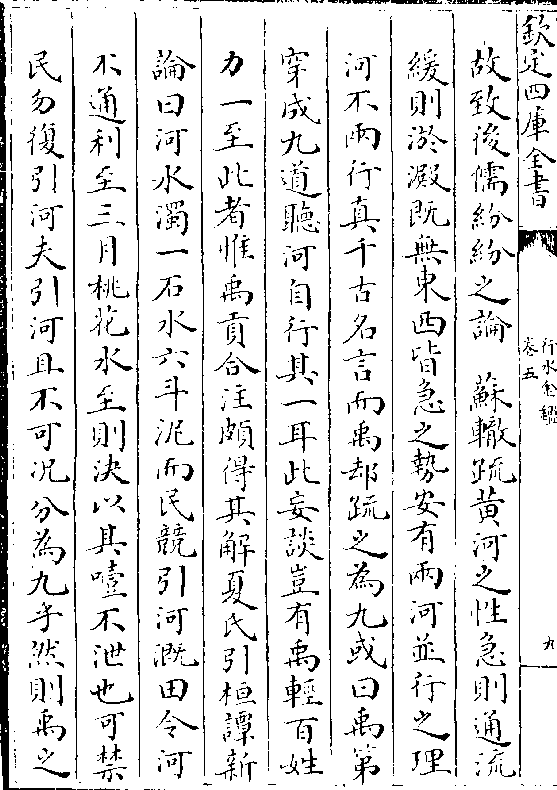 欽定四庫全書
行水金鑑
卷五
九
故致後儒紛紛之論　蘇轍疏黃河之性急則通流
緩則淤澱既無東西皆急之勢安有兩河並行之理
河不兩行真千古名言而禹却疏之為九或曰禹第
穿成九道聽河自行其一耳此妄談豈有禹輕百姓
力一至此者惟禹貢合注頗得其解夏氏引桓譚新
論曰河水濁一石水六斗泥而民競引河溉田令河
不通利至三月桃花水至則決以其噎不泄也可禁
民勿復引河夫引河且不可况分為九乎然則禹之